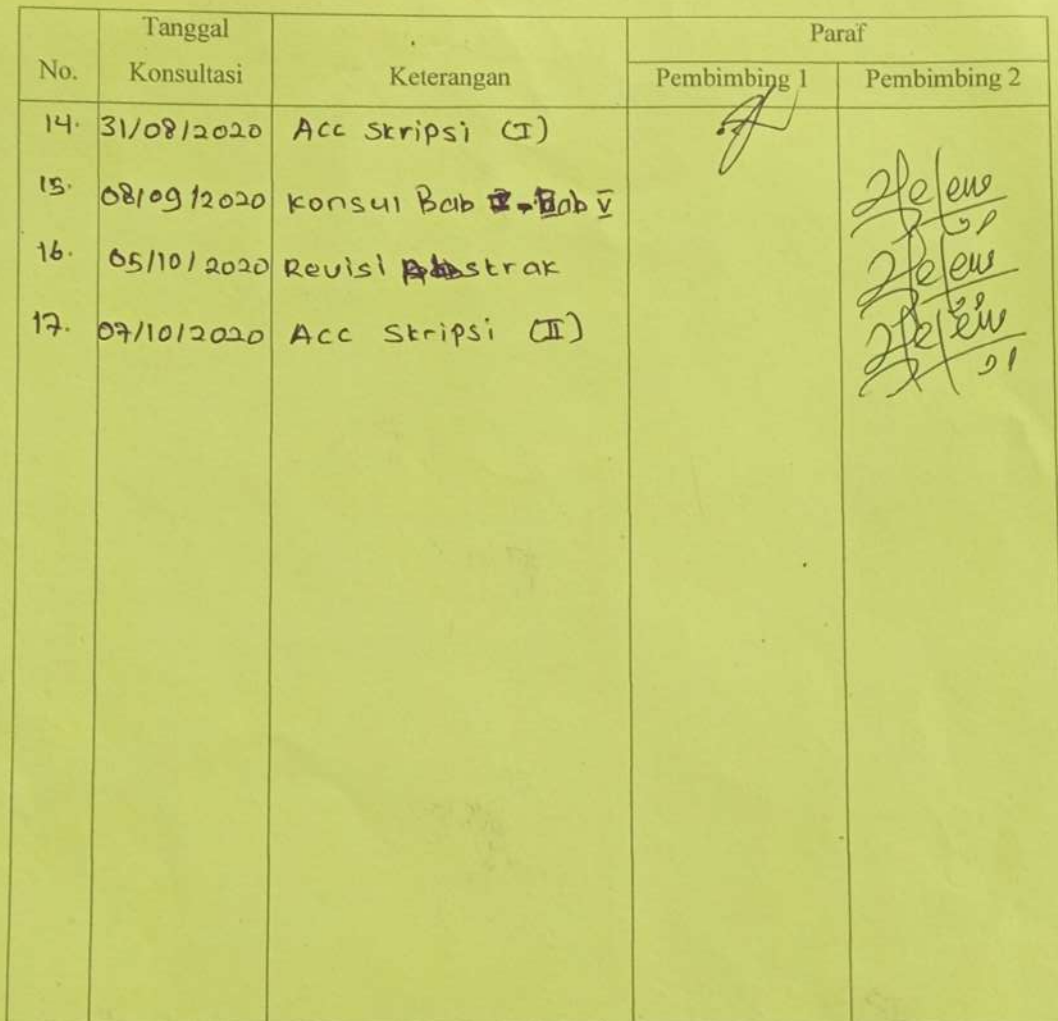 No. Tanggal Konsultasi Keterangan Paraf
Pembimbing 1 Pembimbing 2
14. 31/08/2020 Acc Skripsi (I)
15. 08/09/2020 Konsul Bab I - Bab V
16. 05/10/2020 Revisi Abstrak
17. 07/10/2020 Acc Skripsi (II)